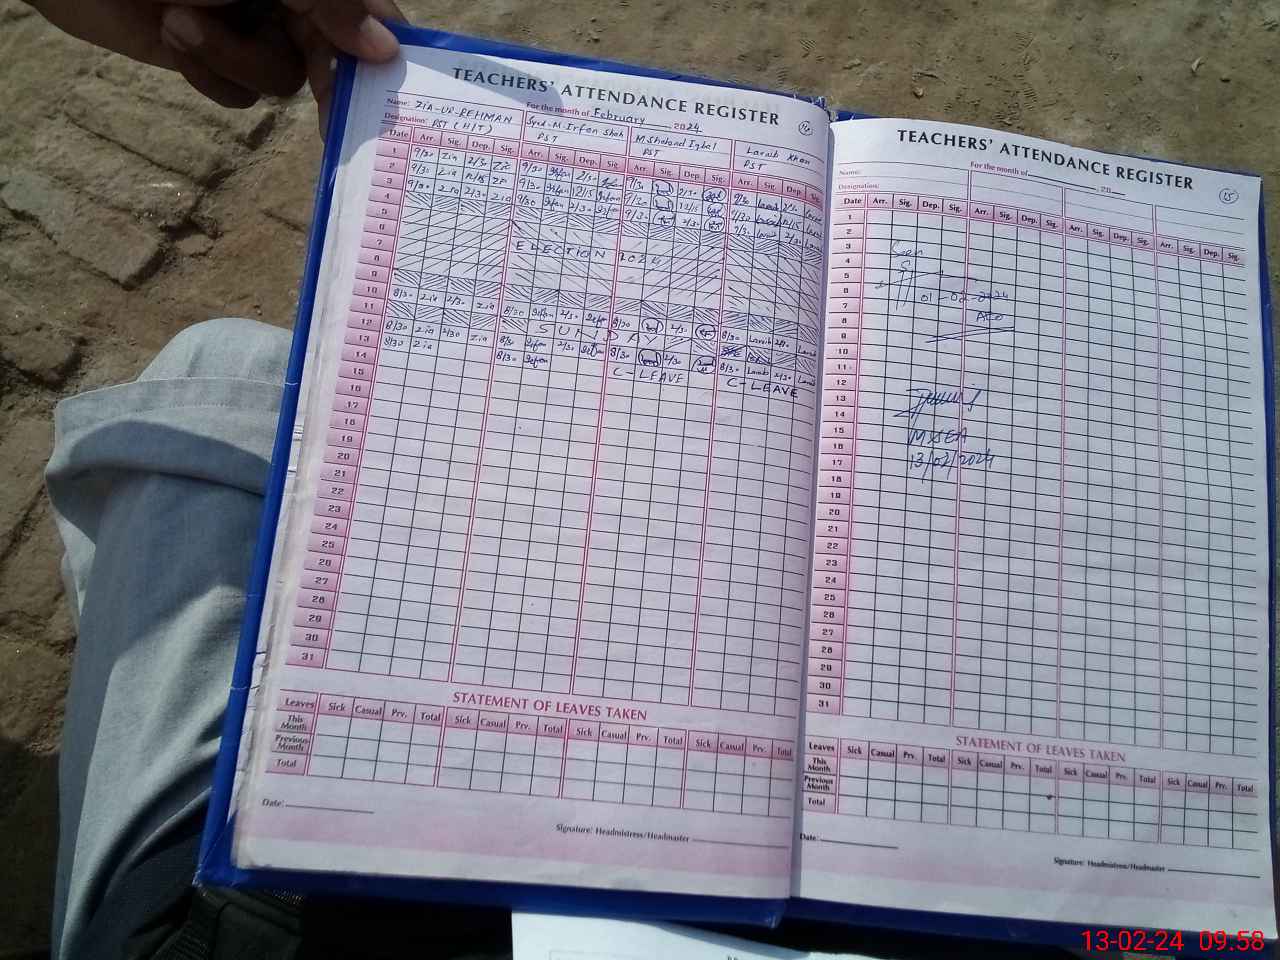 TEACHERS' ATTENDANCE REGISTER
For the month of February 2024
14
Name: ZIA-UR-REHMAN Syed-M-Irfan Shah M.Shehzad Iqbal Laraib Khan
Designation: PST (H/T) PST PST PST
Date Arr. Sig. Dep. Sig. Arr. Sig. Dep. Sig. Arr. Sig. Dep. Sig. Arr. Sig. Dep. Sig.
1 9/30 Zia 2/30 Zia 9/30 Irfan 2/30
2 9/30 Zia 12/15 Zia 9/30 Irfan 12/15 Irfan 9/30 12/15
3 9/30 Zia 2/30 Zia 9/30 Irfan 2/30 Irfan 9/30 2/30 9/30 Laraib 2/30 Laraib
4
5
6
7 ELECTION 2024
8
9
10 8/30 Zia 2/30 Zia 8/30 Irfan 2/30 Irfan 8/30 2/30 8/30 Laraib 2/30 Laraib
11 SUNDAY
12 8/30 Zia 2/30 Zia 8/30 Irfan 2/30 Irfan 8/30 2/30 8/30 Laraib 2/30 Laraib
13 8/30 Zia 8/30 Irfan C-LEAVE C-LEAVE
14
15
16
17
18
19
20
21
22
23
24
25
26
27
28
29
30
31
STATEMENT OF LEAVES TAKEN
Leaves Sick Casual Prv. Total Sick Casual Prv. Total Sick Casual Prv. Total Sick Casual Prv. Total
This Month
Previous Month
Total
Date:
Signature: Headmistress/Headmaster
TEACHERS' ATTENDANCE REGISTER
For the month of , 20
15
Name:
Designation:
Date Arr. Sig. Dep. Sig. Arr. Sig. Dep. Sig. Arr. Sig. Dep. Sig. Arr. Sig. Dep. Sig.
1
2
3
Seen
4
5
6
01-02-2024
7
AEO
8
9
10
11
12
13
14
15
MSEA
16
13/02/2024
17
18
19
20
21
22
23
24
25
26
27
28
29
30
31
STATEMENT OF LEAVES TAKEN
Leaves Sick Casual Prv. Total Sick Casual Prv. Total Sick Casual Prv. Total Sick Casual Prv. Total
This Month
Previous Month
Total
Date:
Signature: Headmistress/Headmaster
13-02-24 09.58